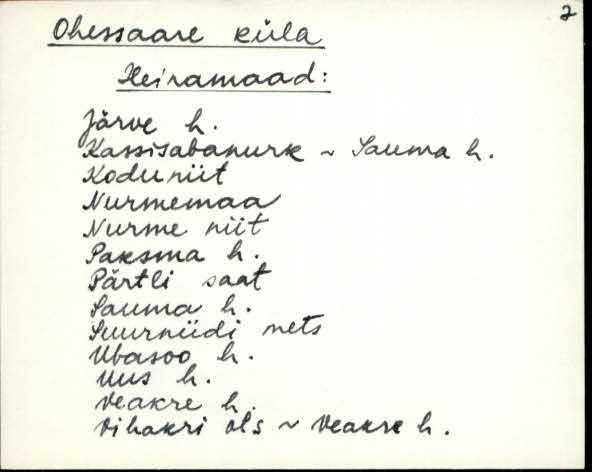 7
Ohessaare küla
Heinamaad:
Järve h.
Kassisabanurk ~ Sauma h.
Koduniit
Nurmemaa
Nurme niit
Paksma h.
Pärtli saat
Sauma h.
Suurniidi mets
Ubasoo h.
Uus h.
Veakre h.
Vihakri ots ~ Veakre h.